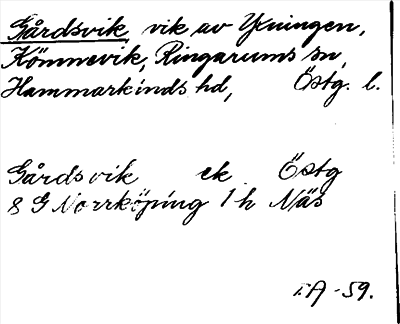 Gårdsvik, vik av Yxningen,
Kömnevik, Ringarums sn,
Hammarkinds hd, Östg. l.
Gårdsvik ek Östg
8 G Norrköping 1 h Näs
-59.